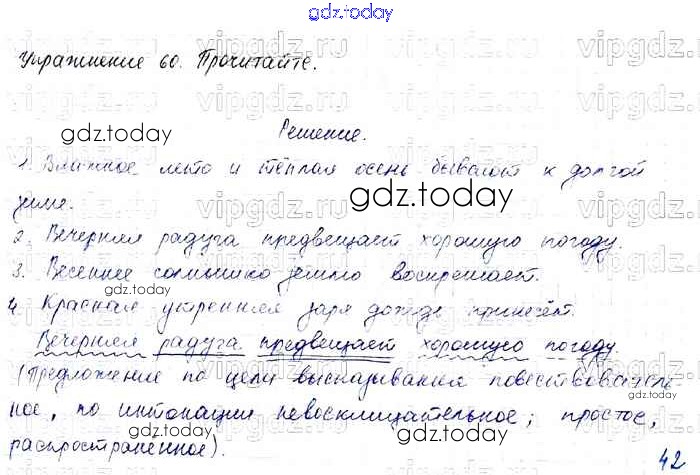 gdz.today
Упражнение 60. Прочитайте.
gdz.today
Решение.
1. Влажное лето и тёплая осень бывают к долгой
зиме.
gdz.today
2. Вечерняя радуга предвещает хорошую погоду.
3. Весеннее солнышко землю воскрешает.
4. Красная утренняя заря дождь принесёт.
Вечерняя радуга предвещает хорошую погоду.
(Предложение по цели высказывания повествователь
ное, по интонации невосклицательное; простое,
распространённое).
gdz.today
42
vipgdz.ru